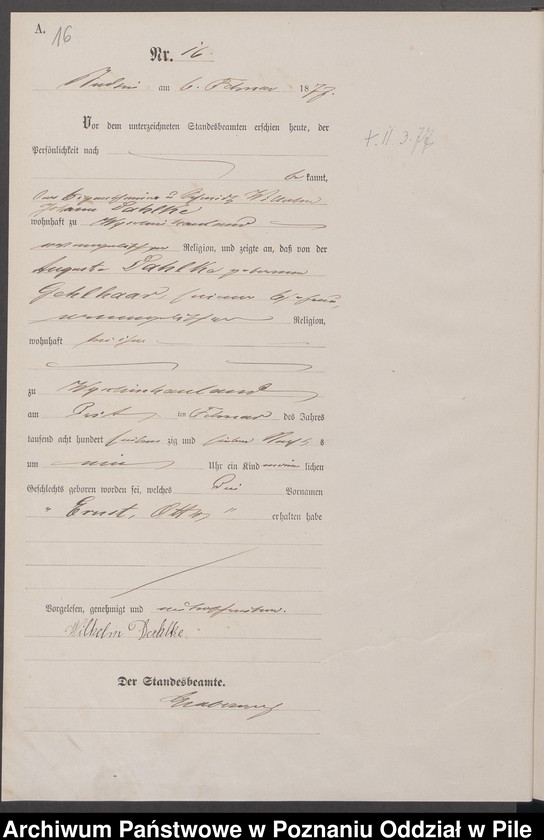 A. 16
Nr. 16
am 6. Februar 1877.
Vor dem unterzeichneten Standesbeamten erschien heute, der
Persönlichkeit nach
be kannt,
+ 11 3. 77
der Eigenthümer u Wilhelm
Johann Dahlke
wohnhaft zu
evangelischer Religion, und zeigte an, daß von der
Auguste Dahlke geborenen
Gehlhaar, seiner Ehefrau,
evangelischer Religion,
wohnhaft bei ihm
zu
am ten Februar des Jahres
tausend acht hundert sieben zig und sieben s
um neun Uhr ein Kind männ lichen
Geschlechts geboren worden sei, welches die Vornamen
" Ernst, Otto, " erhalten habe
Vorgelesen, genehmigt und unterschrieben.
Wilhelm Dahlke.
Der Standesbeamte.
Archiwum Państwowe w Poznaniu Oddział w Pile